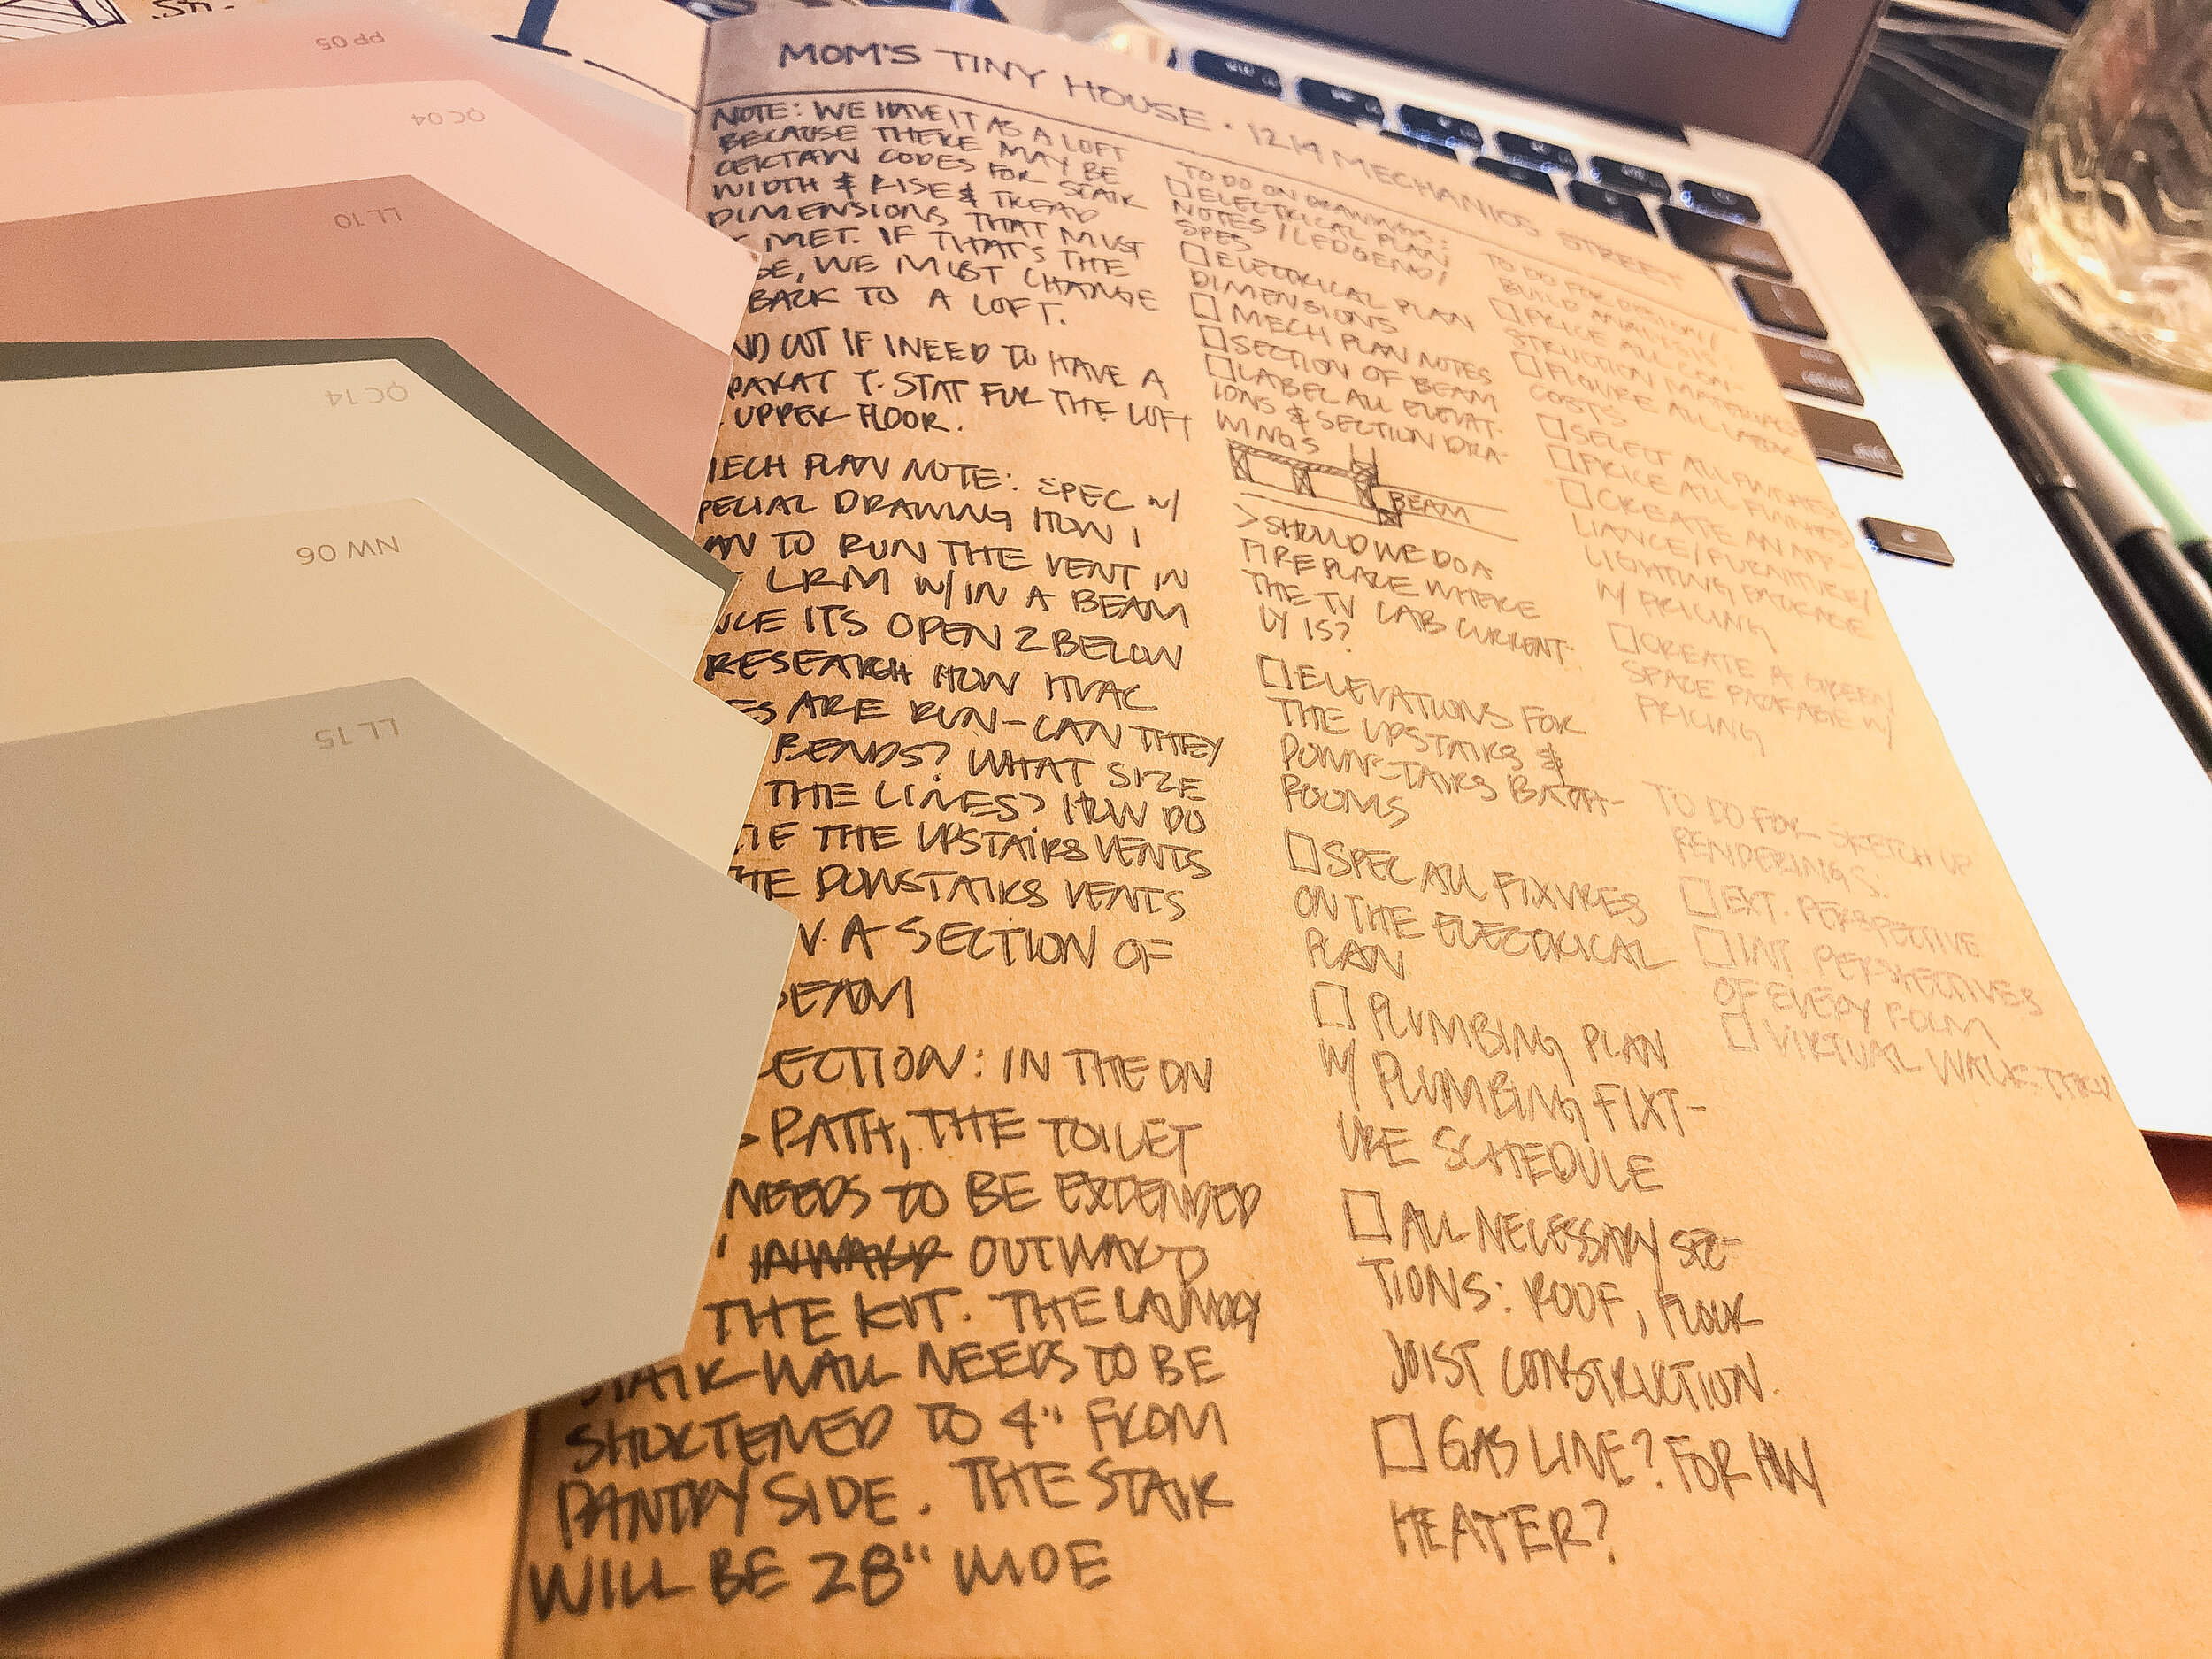 PP 05
QC 04
LL 10
QC 14
NW 06
LL 15
MOM'S TINY HOUSE · 1214 MECHANICS STREET
NOTE: WE HAVE IT AS A LOFT
BECAUSE THERE MAY BE
CERTAIN CODES FOR STAIR
WIDTH & RISE & TREAD
DIMENSIONS THAT MUST
MET. IF THAT'S THE
SE, WE MUST CHANGE
BACK TO A LOFT.
ND OUT IF I NEED TO HAVE A
PARAT T·STAT FOR THE LOFT
UPPER FLOOR.
MECH PLAN NOTE: SPEC W/
PECIAL DRAWING HOW I
AN TO RUN THE VENT IN
LRM W/IN A BEAM
NCE ITS OPEN 2 BELOW
RESEARCH HOW HVAC
ES ARE RUN-CAN THEY
BENDS? WHAT SIZE
THE LINES? HOW DO
TIE THE UPSTAIRS VENTS
THE DOWNSTAIRS VENTS
W. A SECTION OF
BEAM
ECTION: IN THE ON
PATH, THE TOILET
NEEDS TO BE EXTENDED
" INWARD OUTWARD
THE KIT. THE LAUNDRY
STAIR-WALL NEEDS TO BE
SHORTENED TO 4" FROM
PANTRY SIDE. THE STAIR
WILL BE 28" WIDE
TO DO ON DRAWINGS:
□ ELECTRICAL PLAN
NOTES / LEDGEND /
SPES
□ ELECTRICAL PLAN
DIMENSIONS
□ MECH PLAN NOTES
□ SECTION OF BEAM
□ LABEL ALL ELEVAT-
IONS & SECTION DRA-
WINGS
BEAM
> SHOULD WE DO A
FIREPLACE WHERE
THE TV CAB CURRENT-
LY IS?
□ ELEVATIONS FOR
THE UPSTAIRS &
DOWNSTAIRS BATH-
ROOMS
□ SPEC ALL FIXTURES
ON THE ELECTRICAL
PLAN
□ PLUMBING PLAN
W/ PLUMBING FIXT-
URE SCHEDULE
□ ALL NECESSARY SEC-
TIONS: ROOF, FLOOR
JOIST CONSTRUCTION.
□ GAS LINE? FOR HW
HEATER?
TO DO FOR DESIGN/
BUILD ANALYSIS:
□ PRICE ALL CON-
STRUCTION MATERIALS
□ FIGURE ALL LABOR
COSTS
□ SELECT ALL FINISHES
□ PRICE ALL FINISHES
□ CREATE AN APP-
LIANCE/FURNITURE/
LIGHTING PACKAGE
W/ PRICING
□ CREATE A GREEN
SPACE PACKAGE W/
PRICING
TO DO FOR SKETCH UP
RENDERINGS:
□ EXT. PERSPECTIVE
□ INT PERSPECTIVES
OF EVERY ROOM
□ VIRTUAL WALK THRU